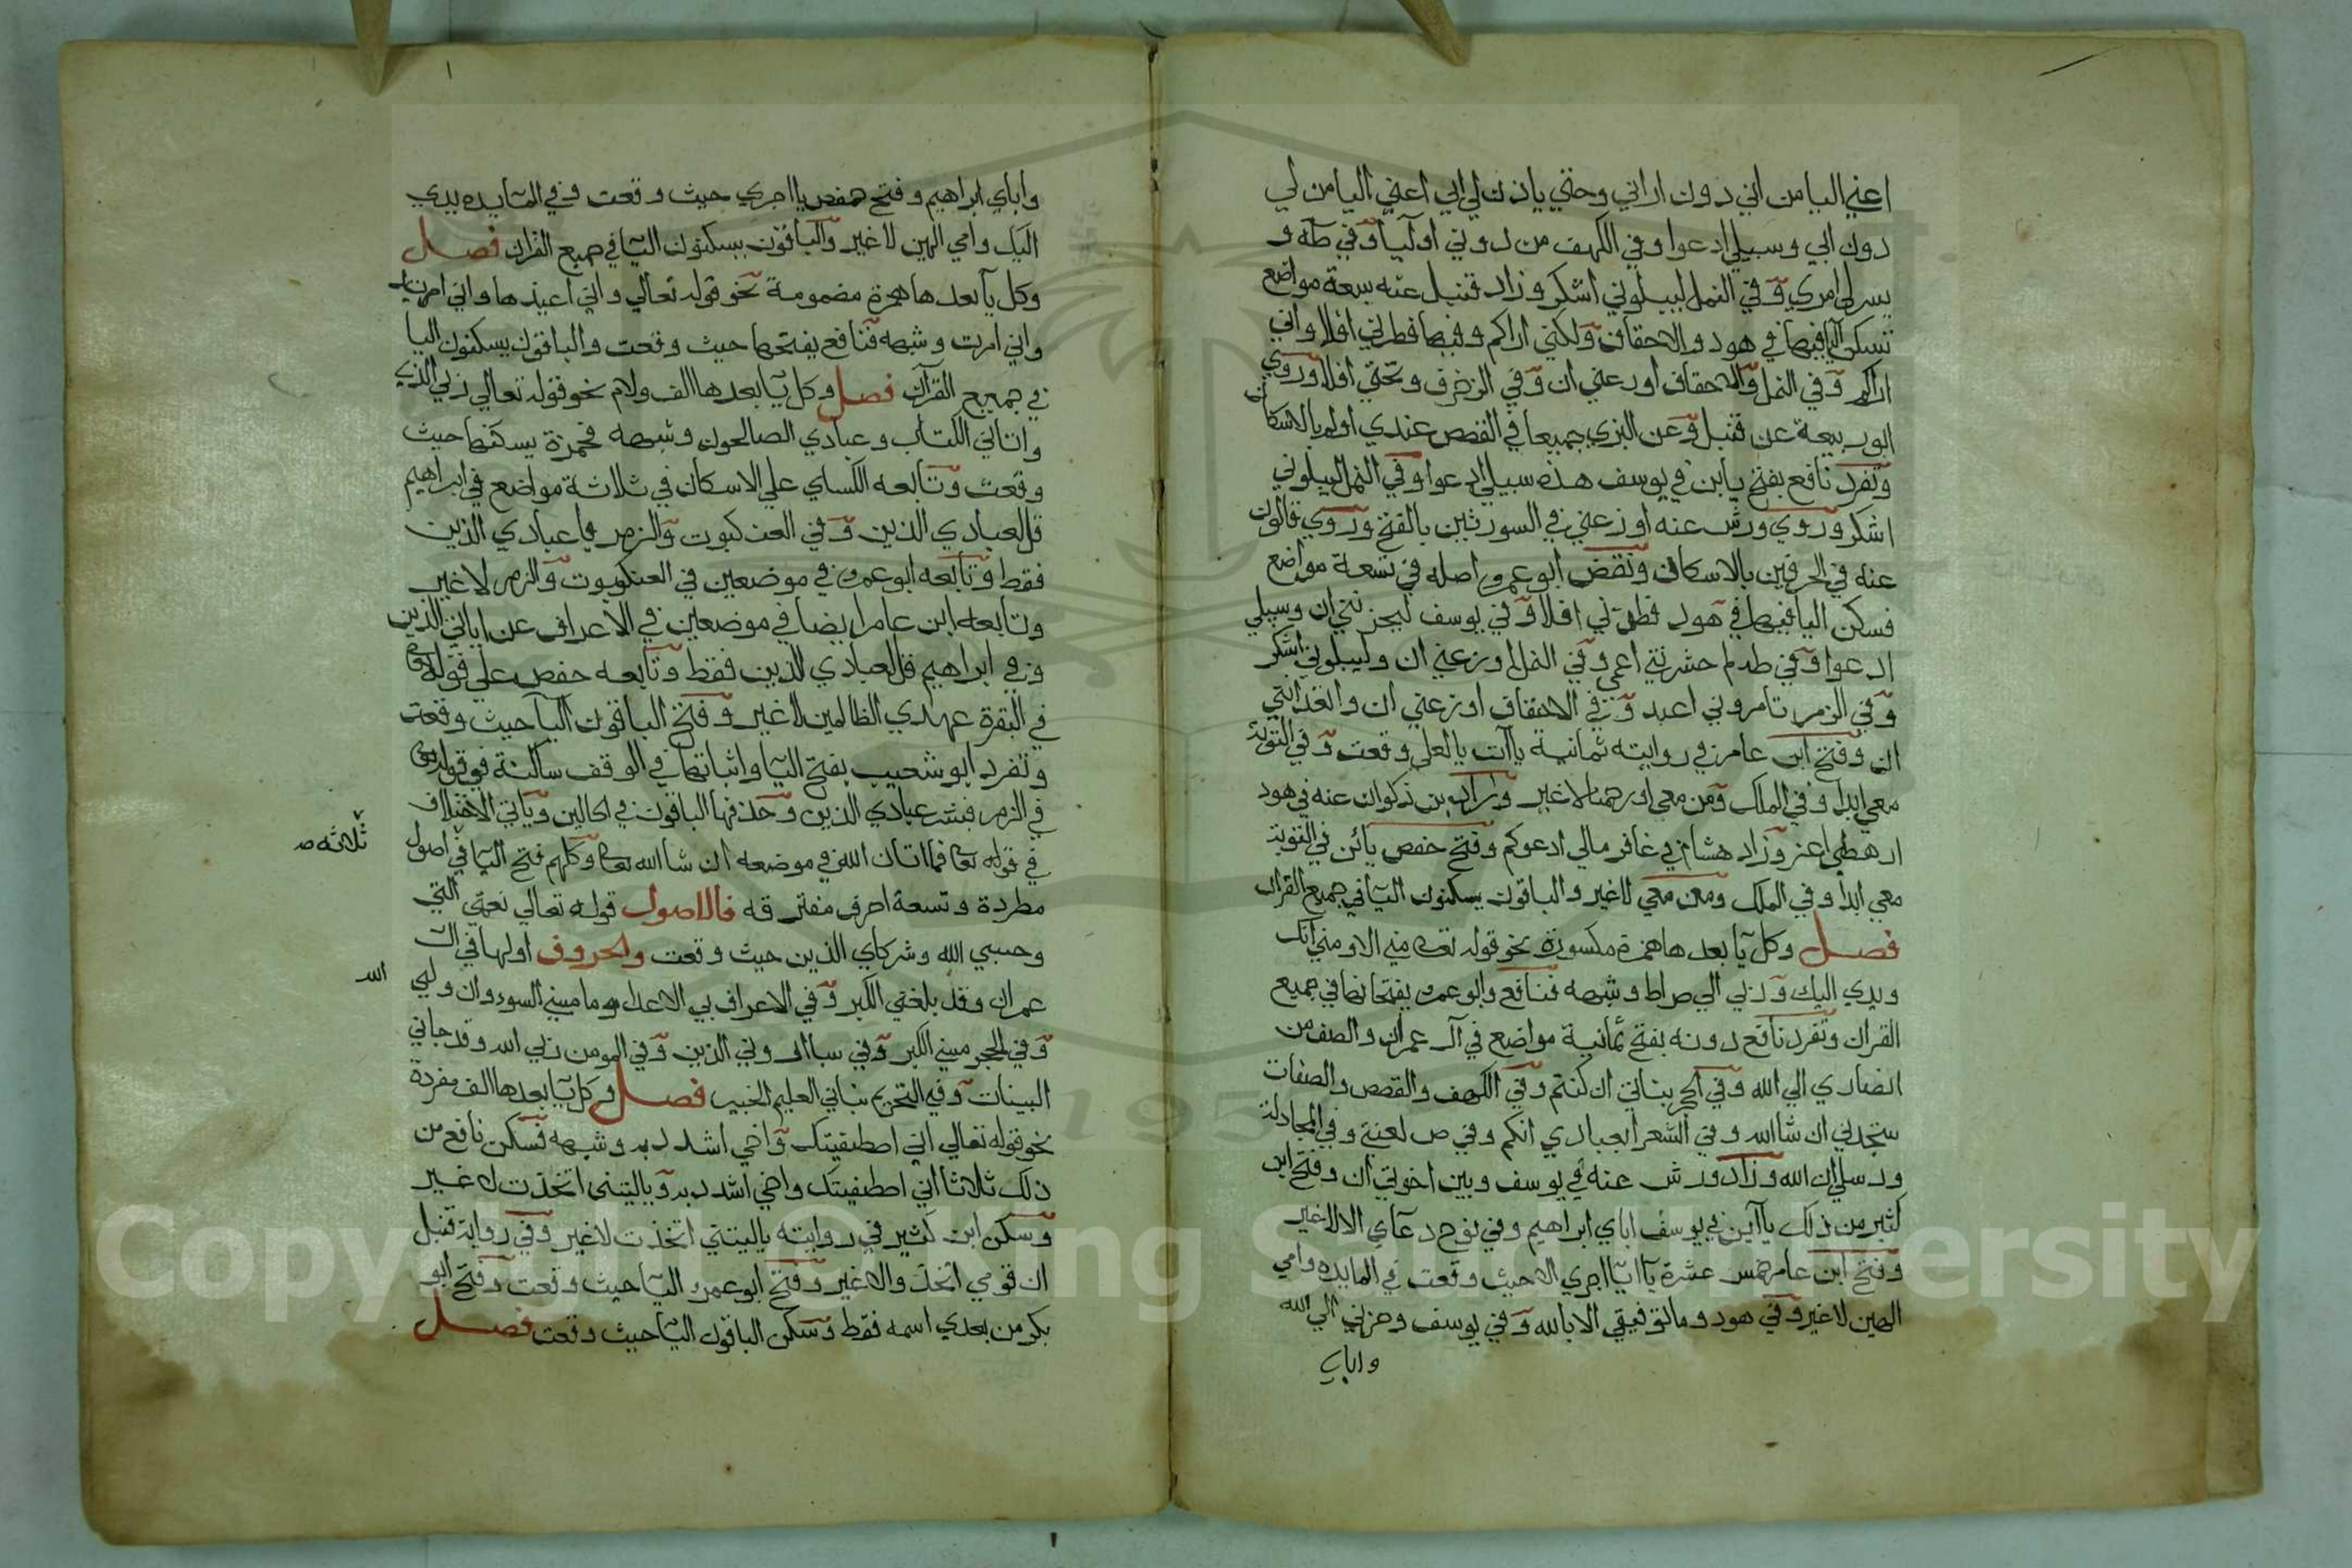 اعني اليا من اني دون اراني وحتي ياذن لي ابي اعني اليا من لي
دون ابي وسبيلي ادعوا وفي الكهف من دوني اوليآ وفي طه و
يسر لي امري وفي النمل ليبلوني اشكر وزاد قنبل عنه سبعة مواضع
تسكن اليا فيها في هود والاحقاف ولكني اراكم وفيها فطرني افلا واني
اراكم وفي النمل والاحقاف اوزعني ان وفي الزخرف وتحتي افلا وروي
ابو ربيعة عن قنبل وعن البزي جميعا في القصص عندي اولم بالاسكان
وتفرد نافع بفتح يا ابن في يوسف هذه سبيلي ادعوا وفي النمل ليبلوني
اشكر وروي ورش عنه اوزعني في السورتين بالفتح وروي قالون
عنه في الحرفين بالاسكان ونقض ابو عمرو اصله في تسعة مواضع
فسكن اليا فيها في هود فطرني افلا وفي يوسف ليحزنني ان وسبيلي
ادعوا وفي طه لم حشرتني اعمي وفي النمل اوزعني ان وليبلوني اشكر
وفي الزمر تامروني اعبد وفي الاحقاف اوزعني ان واتعدانني
ان وفتح ابن عامر في روايته ثمانية يات يا لعلي وقعت وفي التوبة
معي ابدا وفي الملك ومن معي او رحمنا لا غير وزاد ابن ذكوان عنه في هود
ارهطي اعز وزاد هشام في غافر مالي ادعوكم وفتح حفص يائن في التوبة
معي ابدا وفي الملك ومن معي لا غير والباقون يسكنون اليا في جميع القران
فصل وكل يآ بعدها همزة مكسورة نحو قوله تعه مني الا ومني انك
ويدي اليك وربي الي صراط وشبهه فنافع وابو عمرو يفتحانها في جميع
القران وتفرد نافع دونه بفتح ثمانية مواضع في آل عمران والصف من
انصاري الي الله وفي الحجر بناتي ان كنتم وفي الكهف والقصص والصفات
ستجدني ان شا الله وفي الشعرا بعبادي انكم وفي ص لعنتي وفي المجادلة
ورسلي ان الله وزاد ورش عنه في يوسف وبين اخوتي ان وفتح ابن
كثير من ذلك ياآين في يوسف اباي ابراهيم وفي نوح دعآي الا لا غير
وفتح ابن عامر خمس عشرة يآ اجري الا حيث وقعت في المايده وامي
الهين لا غير وفي هود وما توفيقي الا بالله وفي يوسف وحزني الي الله
واباي
واباي ابراهيم وفتح حفص يا اجري حيث وقعت وفي المايده يدي
اليك وامي الهين لا غير والباقون يسكنون اليا في جميع القران فصل
وكل يآ بعدها همزة مضمومة نحو قوله تعالي واني اعيذها واني اريد
واني امرت وشبهه فنافع يفتحها حيث وقعت والباقون يسكنون اليا
في جميع القرآن فصل وكل يآ بعدها الف ولام نحو قوله تعالي ربي الذي
واتاني الكتاب وعبادي الصالحون وشبهه فحمزة يسكنها حيث
وقعت وتابعه الكساي علي الاسكان في ثلاثة مواضع في ابراهيم
قل لعبادي الذين وفي العنكبوت والزمر يا عبادي الذين
فقط وتابعه ابو عمرو في موضعين في العنكبوت والزمر لا غير
وتابعه ابن عامر ايضا في موضعين في الاعراف عن اياتي الذين
وفي ابراهيم قل لعبادي الذين فقط وتابعه حفص علي قوله تعا
في البقرة عهدي الظالمين لا غير وفتح الباقون اليآ حيث وقعت
وتفرد ابو شعيب بفتح اليا واثباتها في الوقف ساكنة في قوله تعا
في الزمر فبشر عبادي الذين وحذفها الباقون في الحالين وياتي الاختلاف
في قوله تعا فما اتان الله في موضعه ان شا الله تعا وكلهم فتح اليا في اصول
ثلاثه صـ
مطردة وتسعة احرف مفترقه فالاصول قوله تعالي نعمتي التي
وحسبي الله وشركاي الذين حيث وقعت والحروف اولها في ال
عمران وقد بلغني الكبر وفي الاعراف بي الاعدا وما مسني السوء وان وليي
الله
وفي الحجر مسني الكبر وفي سبا اروني الذين وفي المومن ربي الله وقد جاني
البينات وفي التحريم نباني العليم الخبير فصل وكل يآ بعدها الف مفردة
نحو قوله تعالي اني اصطفيتك واخي اشدد به وشبهه فسكن نافع من
ذلك ثلاثا اني اصطفيتك واخي اشدد به ويا ليتني اتخذت لا غير
وسكن ابن كثير في روايته يا ليتني اتخذت لا غير وفي رواية قنبل
ان قومي اتخذوا لا غير وفتح ابو عمرو اليآ حيث وقعت وفتح ابو
بكر من بعدي اسمه فقط وسكن الباقون اليآ حيث وقعت فصل
Copyright © King Saud University
195